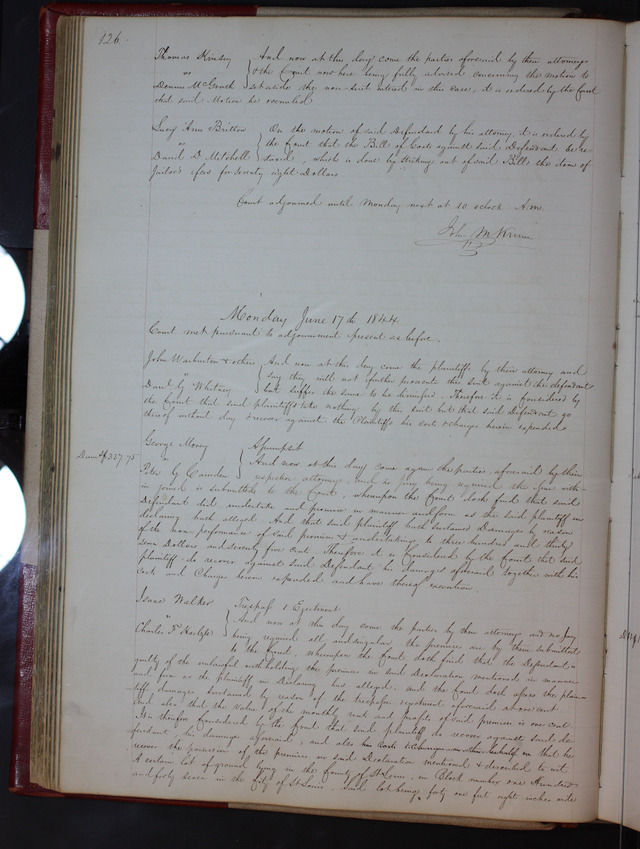 126
Thomas Kinsey And now at this day come the parties aforesaid by their attorneys
vs & the Court now here being fully advised concerning the motion to
Dennis McGrath set aside the non-suit entered in this case, it is ordered by the Court
that said Motion be overruled
Lucy Ann Britton On the motion of said Defendant by his attorney, it is ordered by
vs the Court that the Bill of Costs against said Defendant be re
David D. Mitchell taxed, which is done by striking out of said Bill the item of
Jailor's fees for seventy eight Dollars
Court adjourned until Monday next at 10 oclock A.M.
John M Krum
Monday June 17th 1844
Court met pursuant to adjournment present as before.
John Warburton & others And now at this day come the plaintiffs by their attorney and
say they will not further prosecute their suit against the defendant
Danl G Whitney but suffer the same to be dismissed. Therefore it is considered by
the Court that said plaintiffs take nothing by this suit but that said Defendant go
thereof without day & recover against the Plaintiffs his costs & charges herein expended
George Morey Assumpsit
Dam $337.75 And now at this day come again the parties aforesaid by their
Peter G Camden respective attorneys, and a jury being waived the issue with
in joined is submitted to the Court, whereupon the Court doth find that said
Defendant did undertake and promise in manner and form as the said plaintiff in
declaring hath alleged. And that said plaintiff hath sustained Damages by reason
of the non performance of said promises & undertakings to three hundred and thirty
seven Dollars and seventy five cents. Therefore it is considered by the Court that said
plaintiff do recover against said Defendant his damages aforesaid together with his
costs and Charges herein expended and have thereof execution.
Isaac Walker Trespass & Ejectment
vs And now at this day come the parties by their attorneys and no jury
Charles F being required all and singular the premises are by them submitted
to the Court, whereupon the Court doth find that the Defendant is
guilty of the unlawful withholding the premises in said Declaration mentioned in manner
and form as the plaintiff in Declaring has alleged, and the Court doth assess the plain-
tiff damages sustained by reason of the trespass & ejectment aforesaid at one cent
and also that the value of the monthly rent and profits of said premises is one cent
It is therefore considered by the Court that said plaintiff do recover against said de
fendant, his damages aforesaid, and also his costs & charges in this behalf & that he
recover the possession of the premises in said Declaration mentioned & described to wit
A certain lot of ground lying in the County of St Louis, in Block number one Hundred
and forty seven in the City of St Louis, said lot being forty one feet eight inches wide